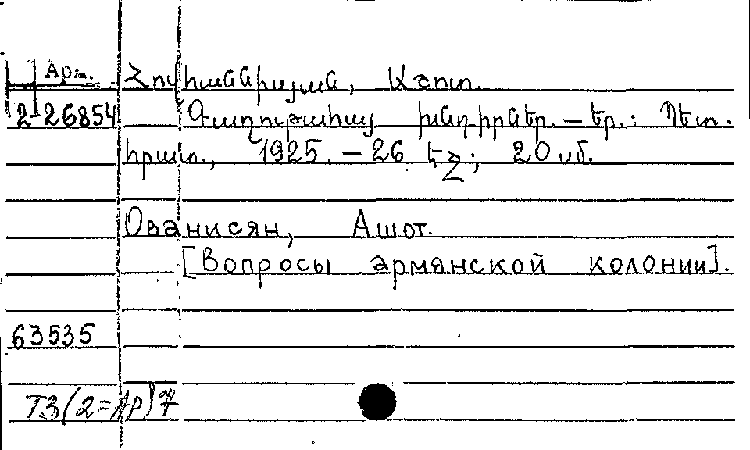 Арм. Հովհաննիսյան, Աշոտ.
2-26854 Գաղութահայ խնդիրներ. — Եր.: Պետ.
հրատ., 1925. — 26 էջ; 20 սմ.
Ованисян, Ашот.
[Вопросы армянской колонии].
63535
Т3(2=Ар)7